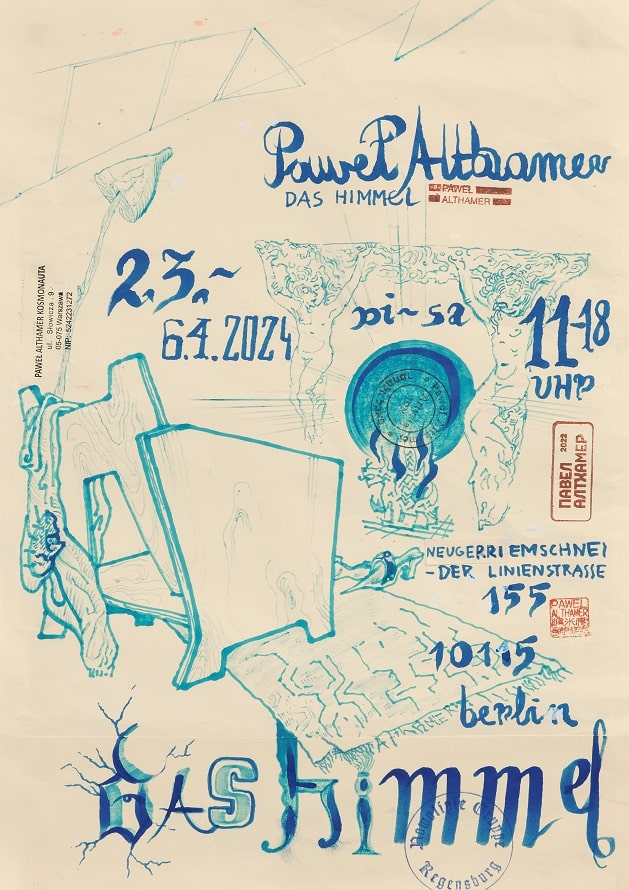 Paweł Althamer
DAS HIMMEL
PAWEŁ
ALTHAMER
2.3.~
6.4.2024
di~sa
11-18
UHR
PAWEŁ ALTHAMER KOSMONAUTA
ul. Słowicza 9
05-075 Warszawa
NIP: 5242231272
2022
ПАВЕЛ
АЛТХАМЕР
NEUGERRIEMSCHNEI
-DER LINIENSTRASSE
155
PAWEŁ
ALTHAMER
10115
berlin
Das Himmel
Nowolipie Gruppe
Regensburg